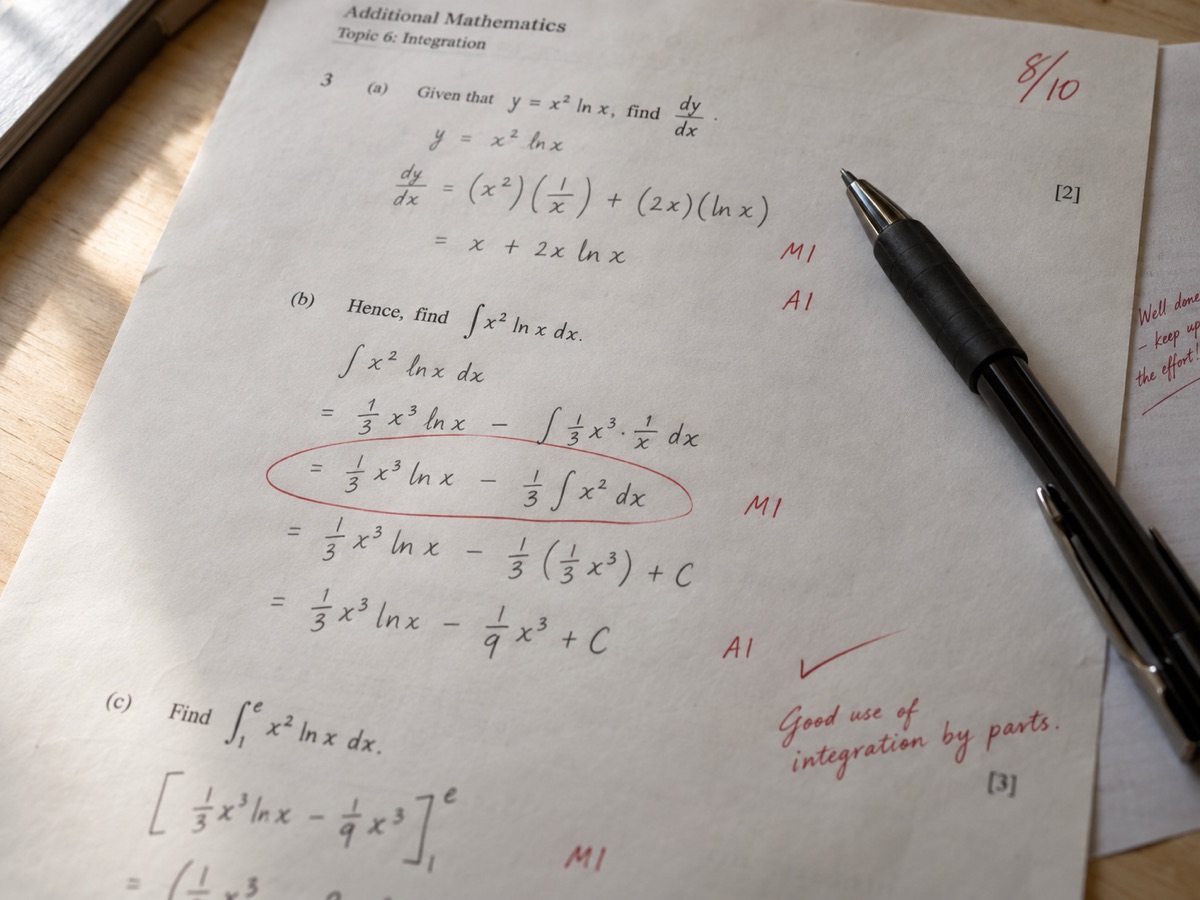 Additional Mathematics
Topic 6: Integration
8/10
3 (a) Given that y = x² ln x, find dy/dx .
y = x² ln x
[2]
dy/dx = (x²)(1/x) + (2x)(ln x)
= x + 2x ln x M1
A1
(b) Hence, find ∫x² ln x dx.
∫ x² ln x dx
= 1/3 x³ ln x − ∫ 1/3 x³ · 1/x dx
= 1/3 x³ ln x − 1/3 ∫ x² dx M1
= 1/3 x³ ln x − 1/3 (1/3 x³) + C
= 1/3 x³ ln x − 1/9 x³ + C A1 ✓
Good use of
integration by parts.
[3]
(c) Find ∫₁ᵉ x² ln x dx.
[ 1/3 x³ ln x − 1/9 x³ ]₁ᵉ
M1
= (1 x³
Well done
– keep up
the effort!